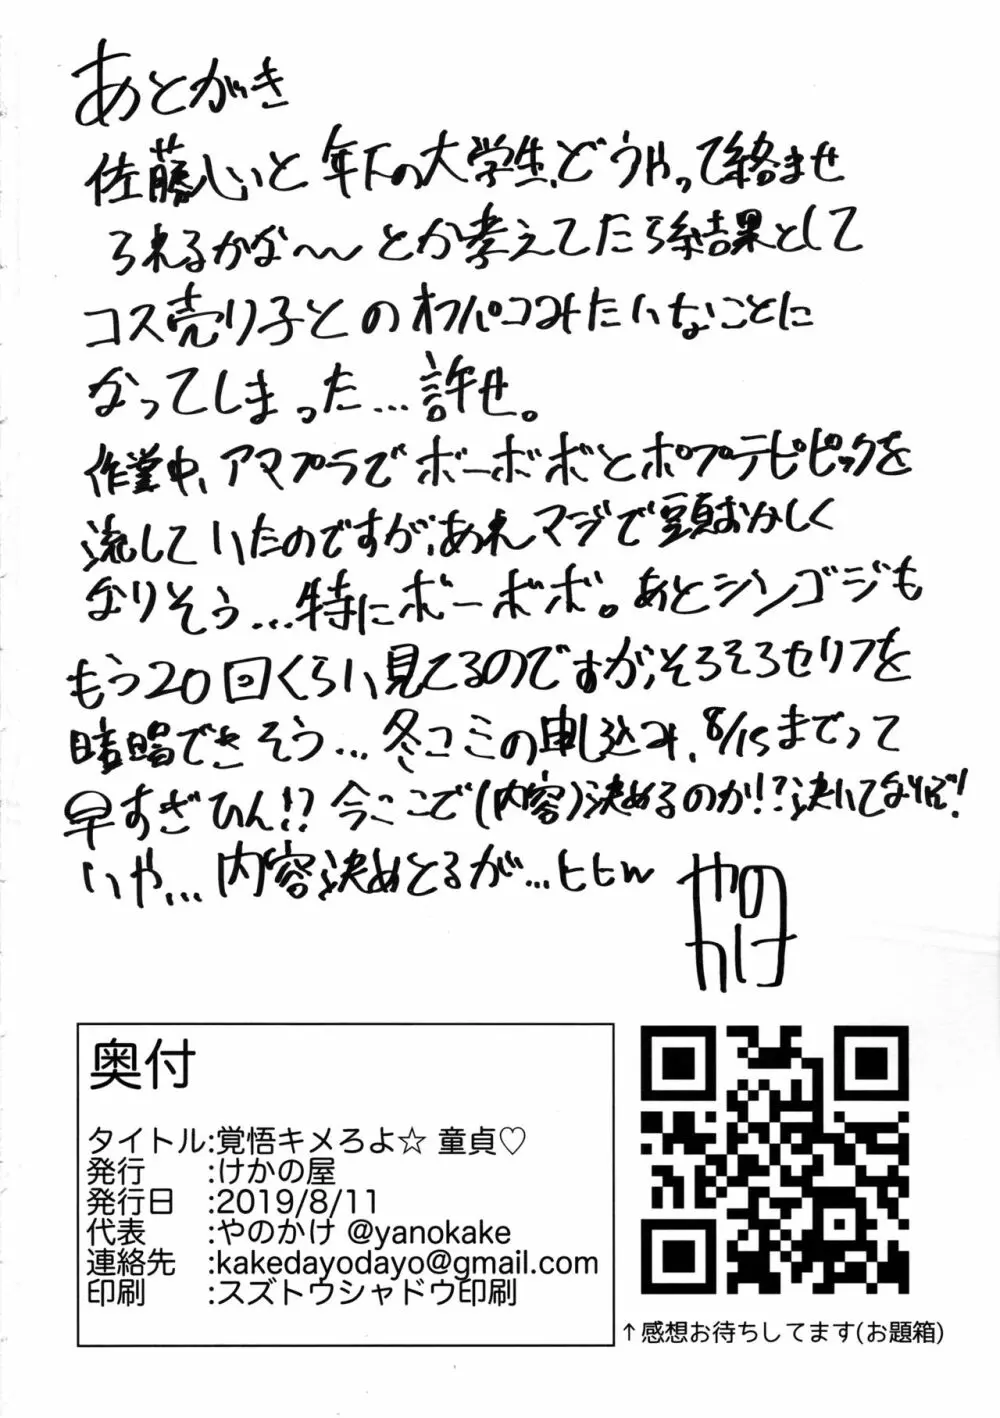 あとがき
佐藤しいと年下の大学生、どうやって絡ませ
られるかな〜とか考えてたら結果として
コス売り子とのオフパコみたいなことに
なってしまった…許せ。
作業中、アマプラでボーボボとポプテピピックを
流していたのですが、あれマジで頭おかしく
なりそう…特にボーボボ。あとシンゴジも
もう20回くらい見てるのですが、そろそろセリフを
暗唱できそう…冬コミの申し込み、8/15までって
早すぎひん!?今ここで(内容)決めるのか!?決いてないぞ!
いや…内容決めとるが…ヒヒw
やの
かけ
奥付
タイトル:覚悟キメろよ☆ 童貞♡
発行　　:けかの屋
発行日　:2019/8/11
代表　　:やのかけ @yanokake
連絡先　:kakedayodayo@gmail.com
印刷　　:スズトウシャドウ印刷
↑感想お待ちしてます(お題箱)